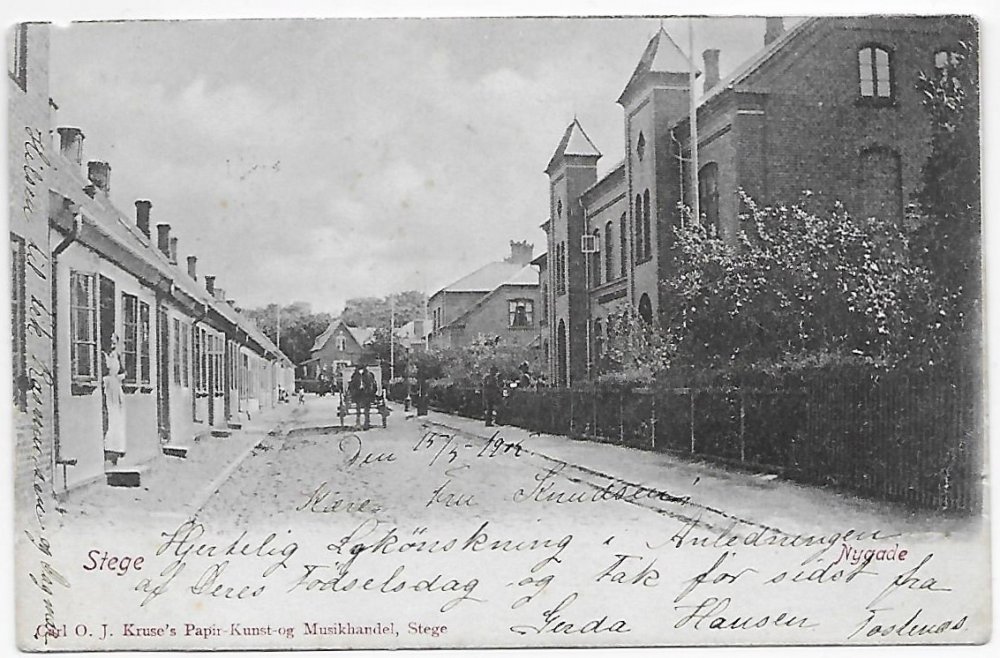 Den 15/5 - 190
Kære Fru Knudsen!
Hjertelig Lykönskning i Anledningen
af Deres Fødselsdag og Tak for sidst fra
Gerda Hansen
Stege
Nygade
Carl O. J. Kruse's Papir-Kunst-og Musikhandel, Stege
Hilsen til
Rasmussen og